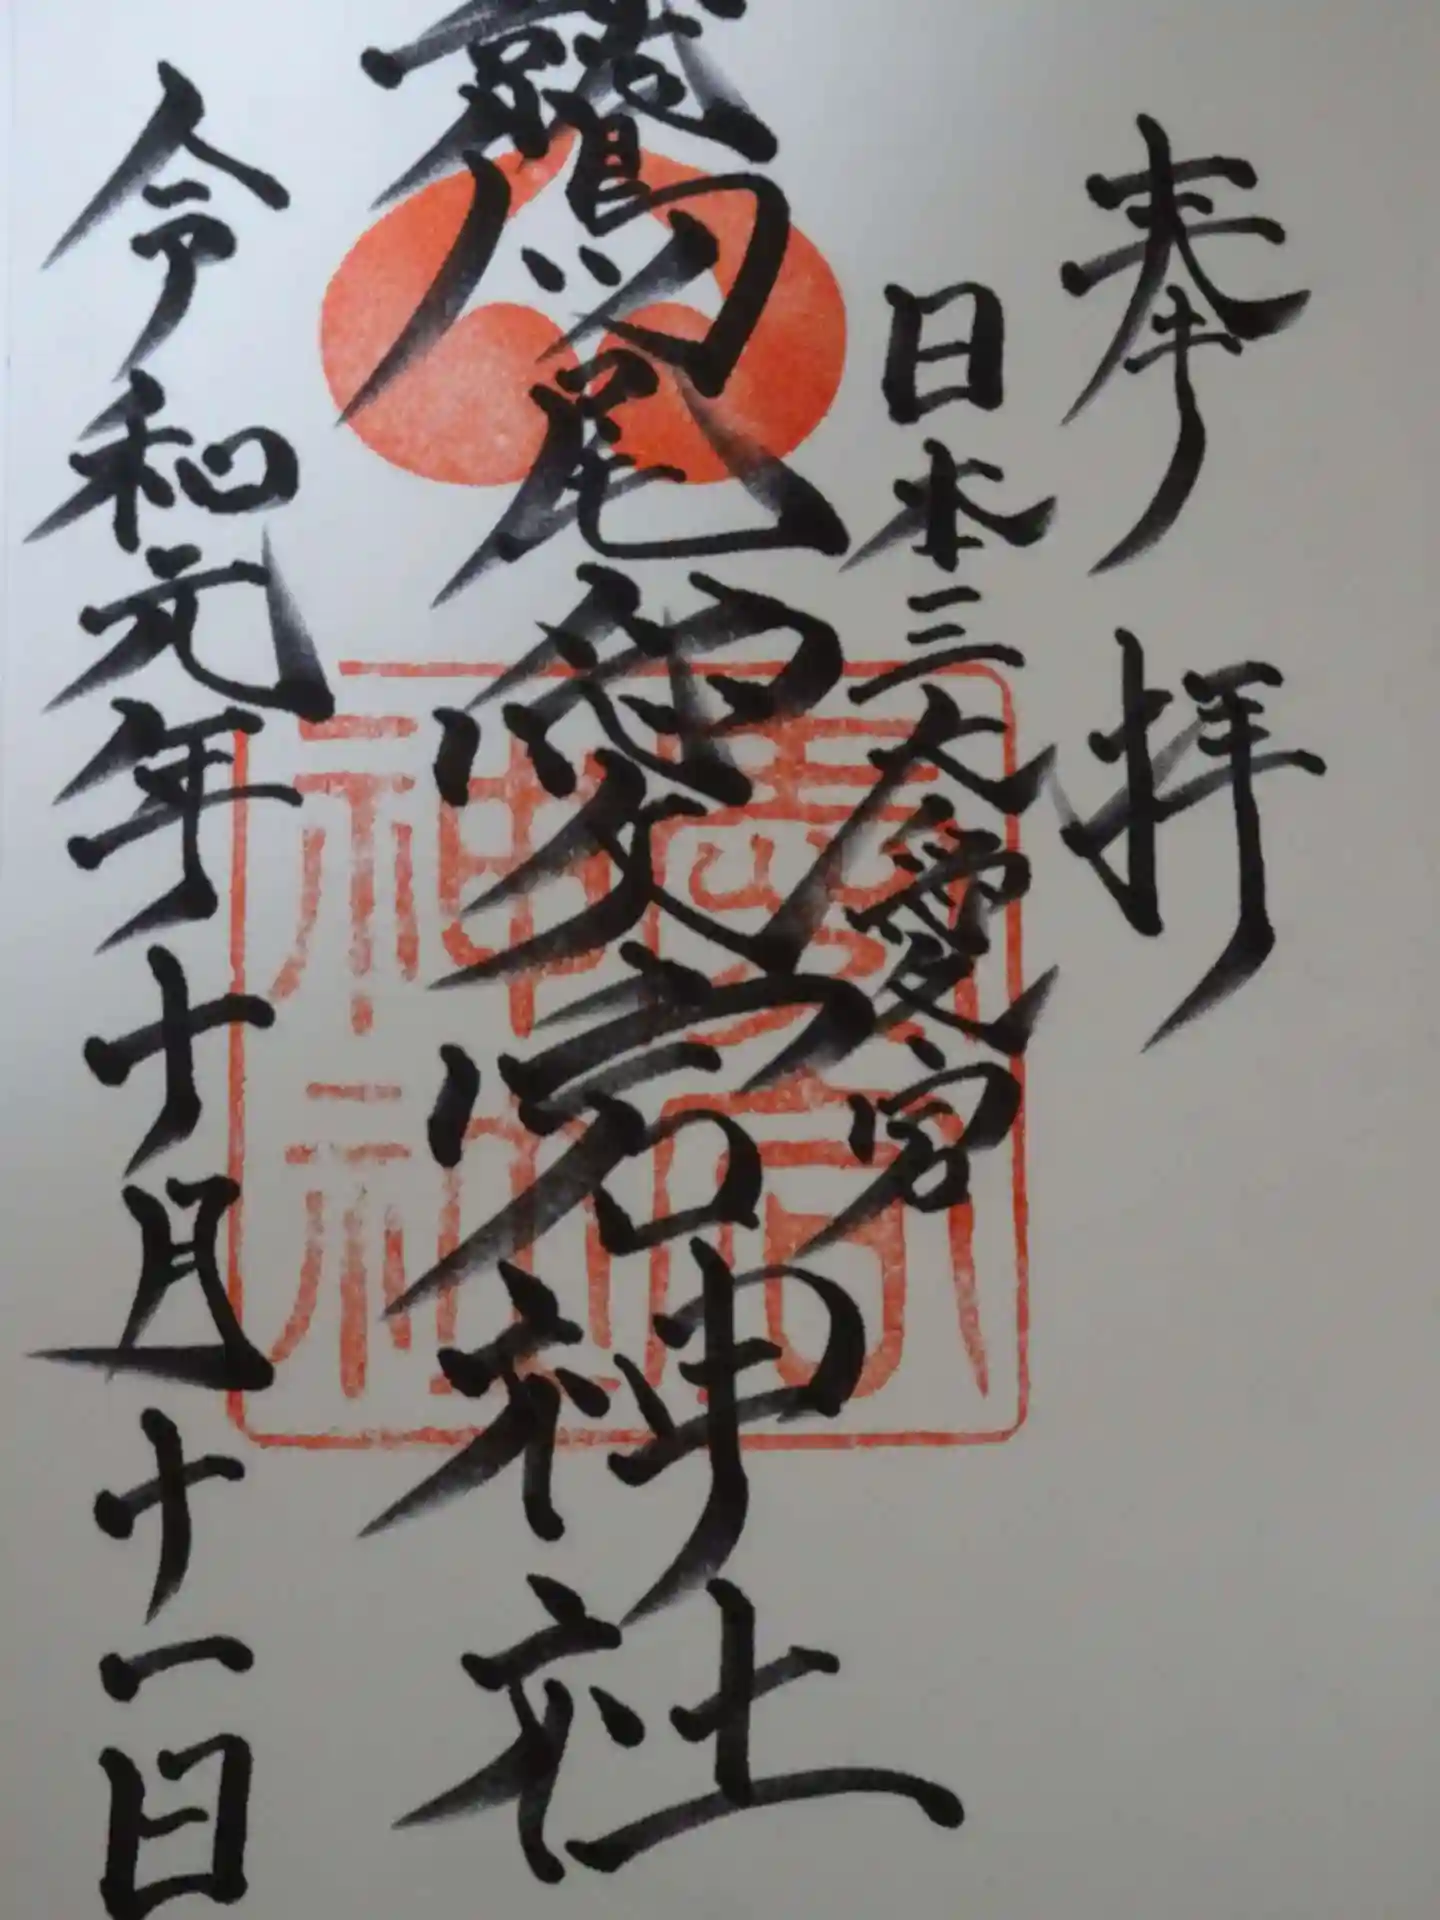 奉拝
日本三大愛宕
鷲尾愛宕神社
令和元年十月十一日
愛宕
神社